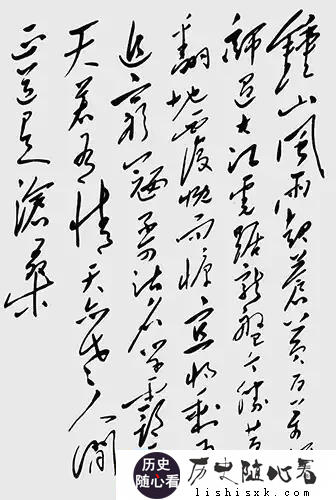 鍾山風雨起蒼黃百萬
師過大江虎踞龍盤今勝昔
翻地覆慨而慷宜將剩
追窮寇不可沽名學霸
天若有情天亦老人間
正道是滄桑
历史
随心看
历史随心看
lishisxk.com